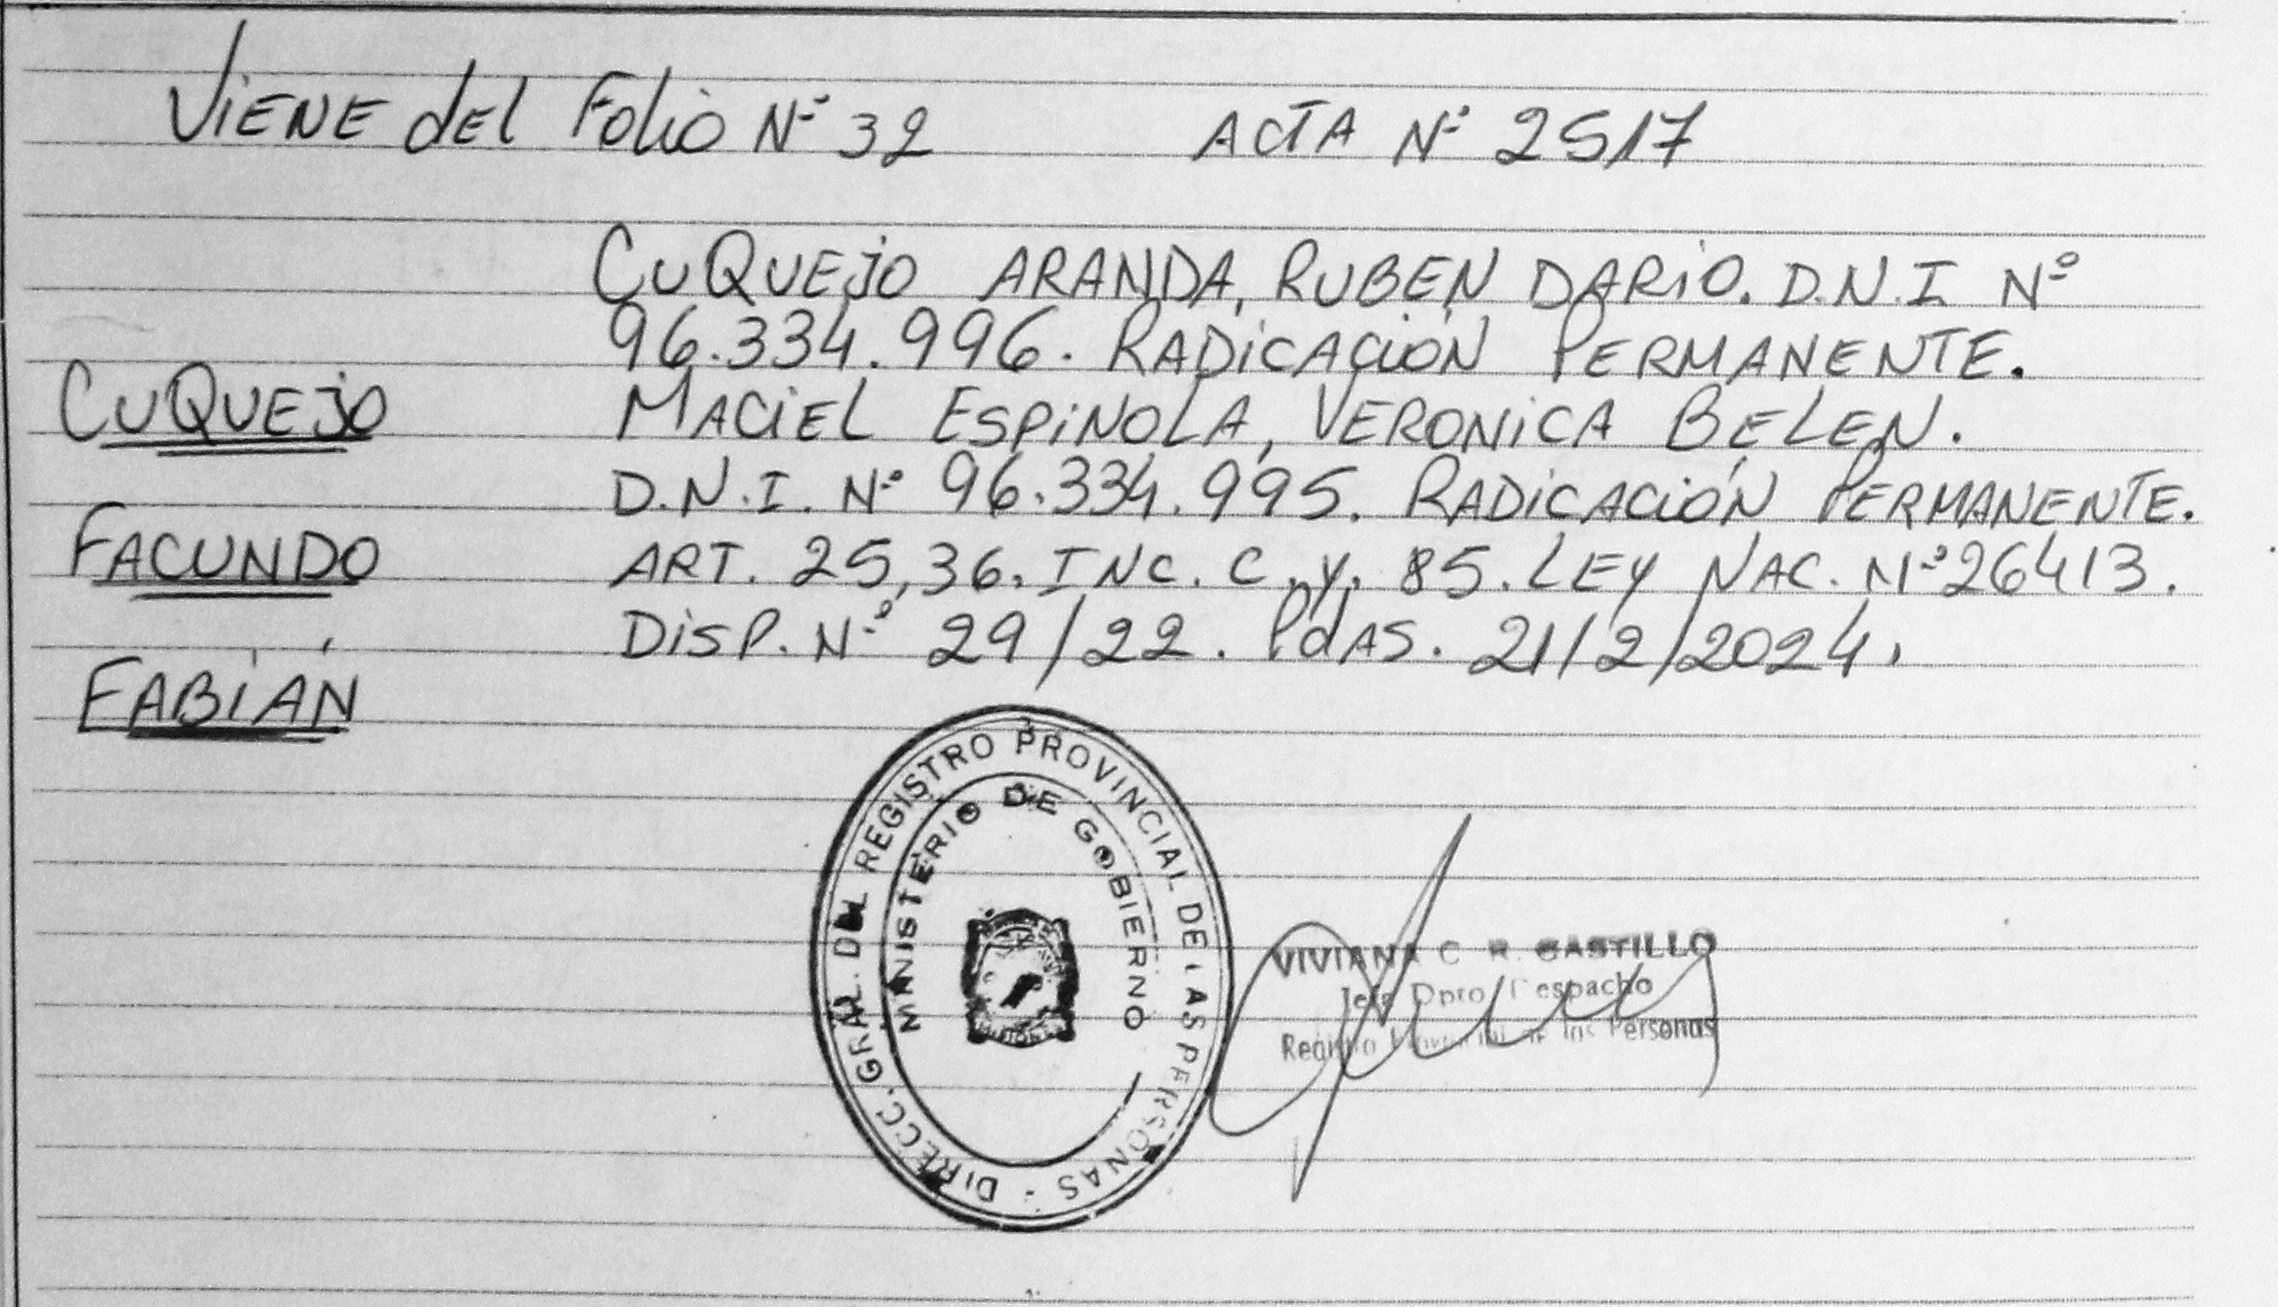 Viene del Folio Nº 32 ACTA Nº 2517
CUQUEJO ARANDA, RUBEN DARIO. D.N.I. Nº
96.334.996. RADICACIÓN PERMANENTE.
CUQUEJO
MACIEL ESPINOLA, VERONICA BELEN.
D.N.I. Nº 96.334.995. RADICACIÓN PERMANENTE.
FACUNDO
ART. 25,36. INC. C. y. 85. LEY NAC. Nº 26413.
DISP. Nº 29/22. PdAS. 21/2/2024.
FABIÁN
DIRECC. GRAL. DEL REGISTRO PROVINCIAL DE LAS PERSONAS -
MINISTERIO DE GOBIERNO
VIVIANA C. R. CASTILLO
Jefa Dpto Despacho
Registro Provincial de las Personas